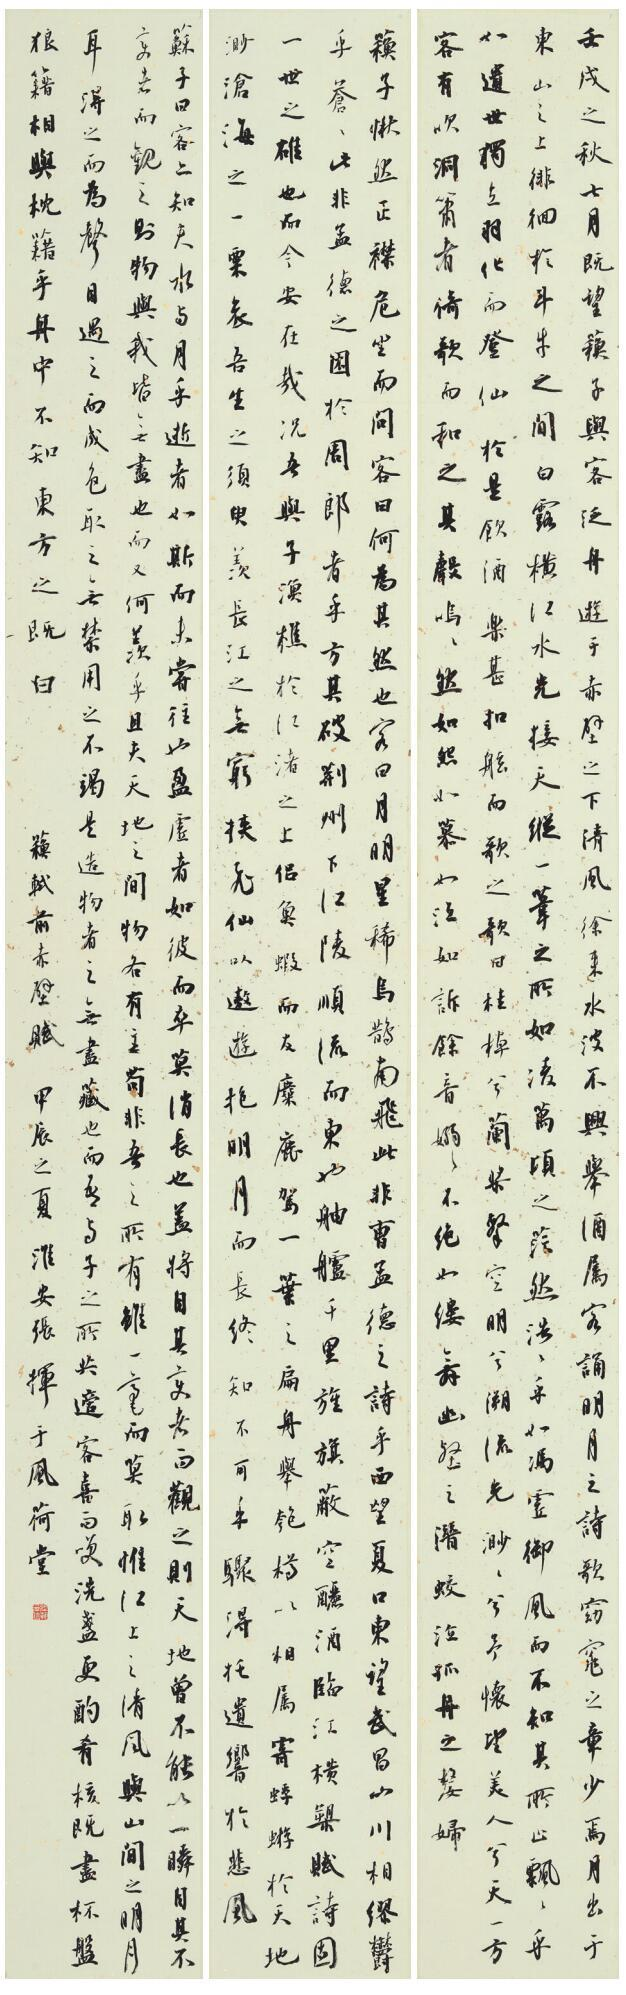 壬戌之秋七月既望蘇子與客泛舟遊于赤壁之下清風徐來水波不興舉酒属客誦明月之詩歌窈窕之章少焉月出于
東山之上徘徊於斗牛之間白露橫江水光接天縱一葦之所如凌萬頃之茫然浩〻乎如馮虛御風而不知其所止飄〻乎
如遺世獨立羽化而登仙於是飲酒樂甚扣舷而歌之歌曰桂棹兮蘭槳擊空明兮溯流光渺〻兮予懷望美人兮天一方
客有吹洞簫者倚歌而和之其聲嗚〻然如怨如慕如泣如訴餘音嫋〻不絕如縷舞幽壑之潛蛟泣孤舟之嫠婦
蘇子愀然正襟危坐而問客曰何為其然也客曰月明星稀烏鵲南飛此非曹孟德之詩乎西望夏口東望武昌山川相繆鬱
乎蒼〻此非孟德之困於周郎者乎方其破荆州下江陵順流而東也舳艫千里旌旗蔽空釃酒臨江橫槊賦詩固
一世之雄也而今安在哉况吾與子漁樵於江渚之上侣魚蝦而友麋鹿駕一葉之扁舟舉匏樽以相属寄蜉蝣於天地
渺滄海之一粟哀吾生之須臾羨長江之無窮挾飛仙以遨遊抱明月而長終知不可乎驟得托遺響於悲風
蘇子曰客亦知夫水与月乎逝者如斯而未嘗往也盈虛者如彼而卒莫消長也蓋將自其變者而觀之則天地曾不能以一瞬自其不
變者而觀之則物與我皆無盡也而又何羨乎且夫天地之間物各有主苟非吾之所有雖一毫而莫取惟江上之清風與山間之明月
耳得之而為聲目遇之而成色取之無禁用之不竭是造物者之無盡藏也而吾与子之所共適客喜而笑洗盞更酌肴核既盡杯盤
狼籍相與枕籍乎舟中不知東方之既白
蘇軾前赤壁賦 甲辰之夏淮安張揮于風荷堂